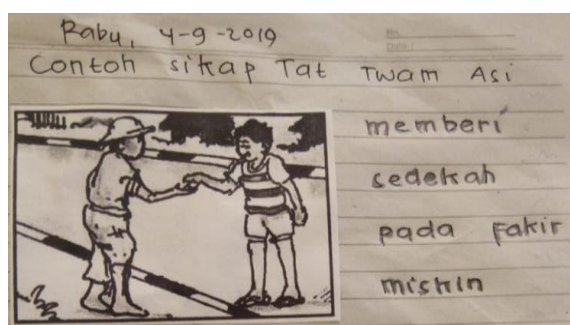 Rabu, 4-9-2019
Contoh sikap Tat Twam Asi
memberi
sedekah
pada fakir
miskin